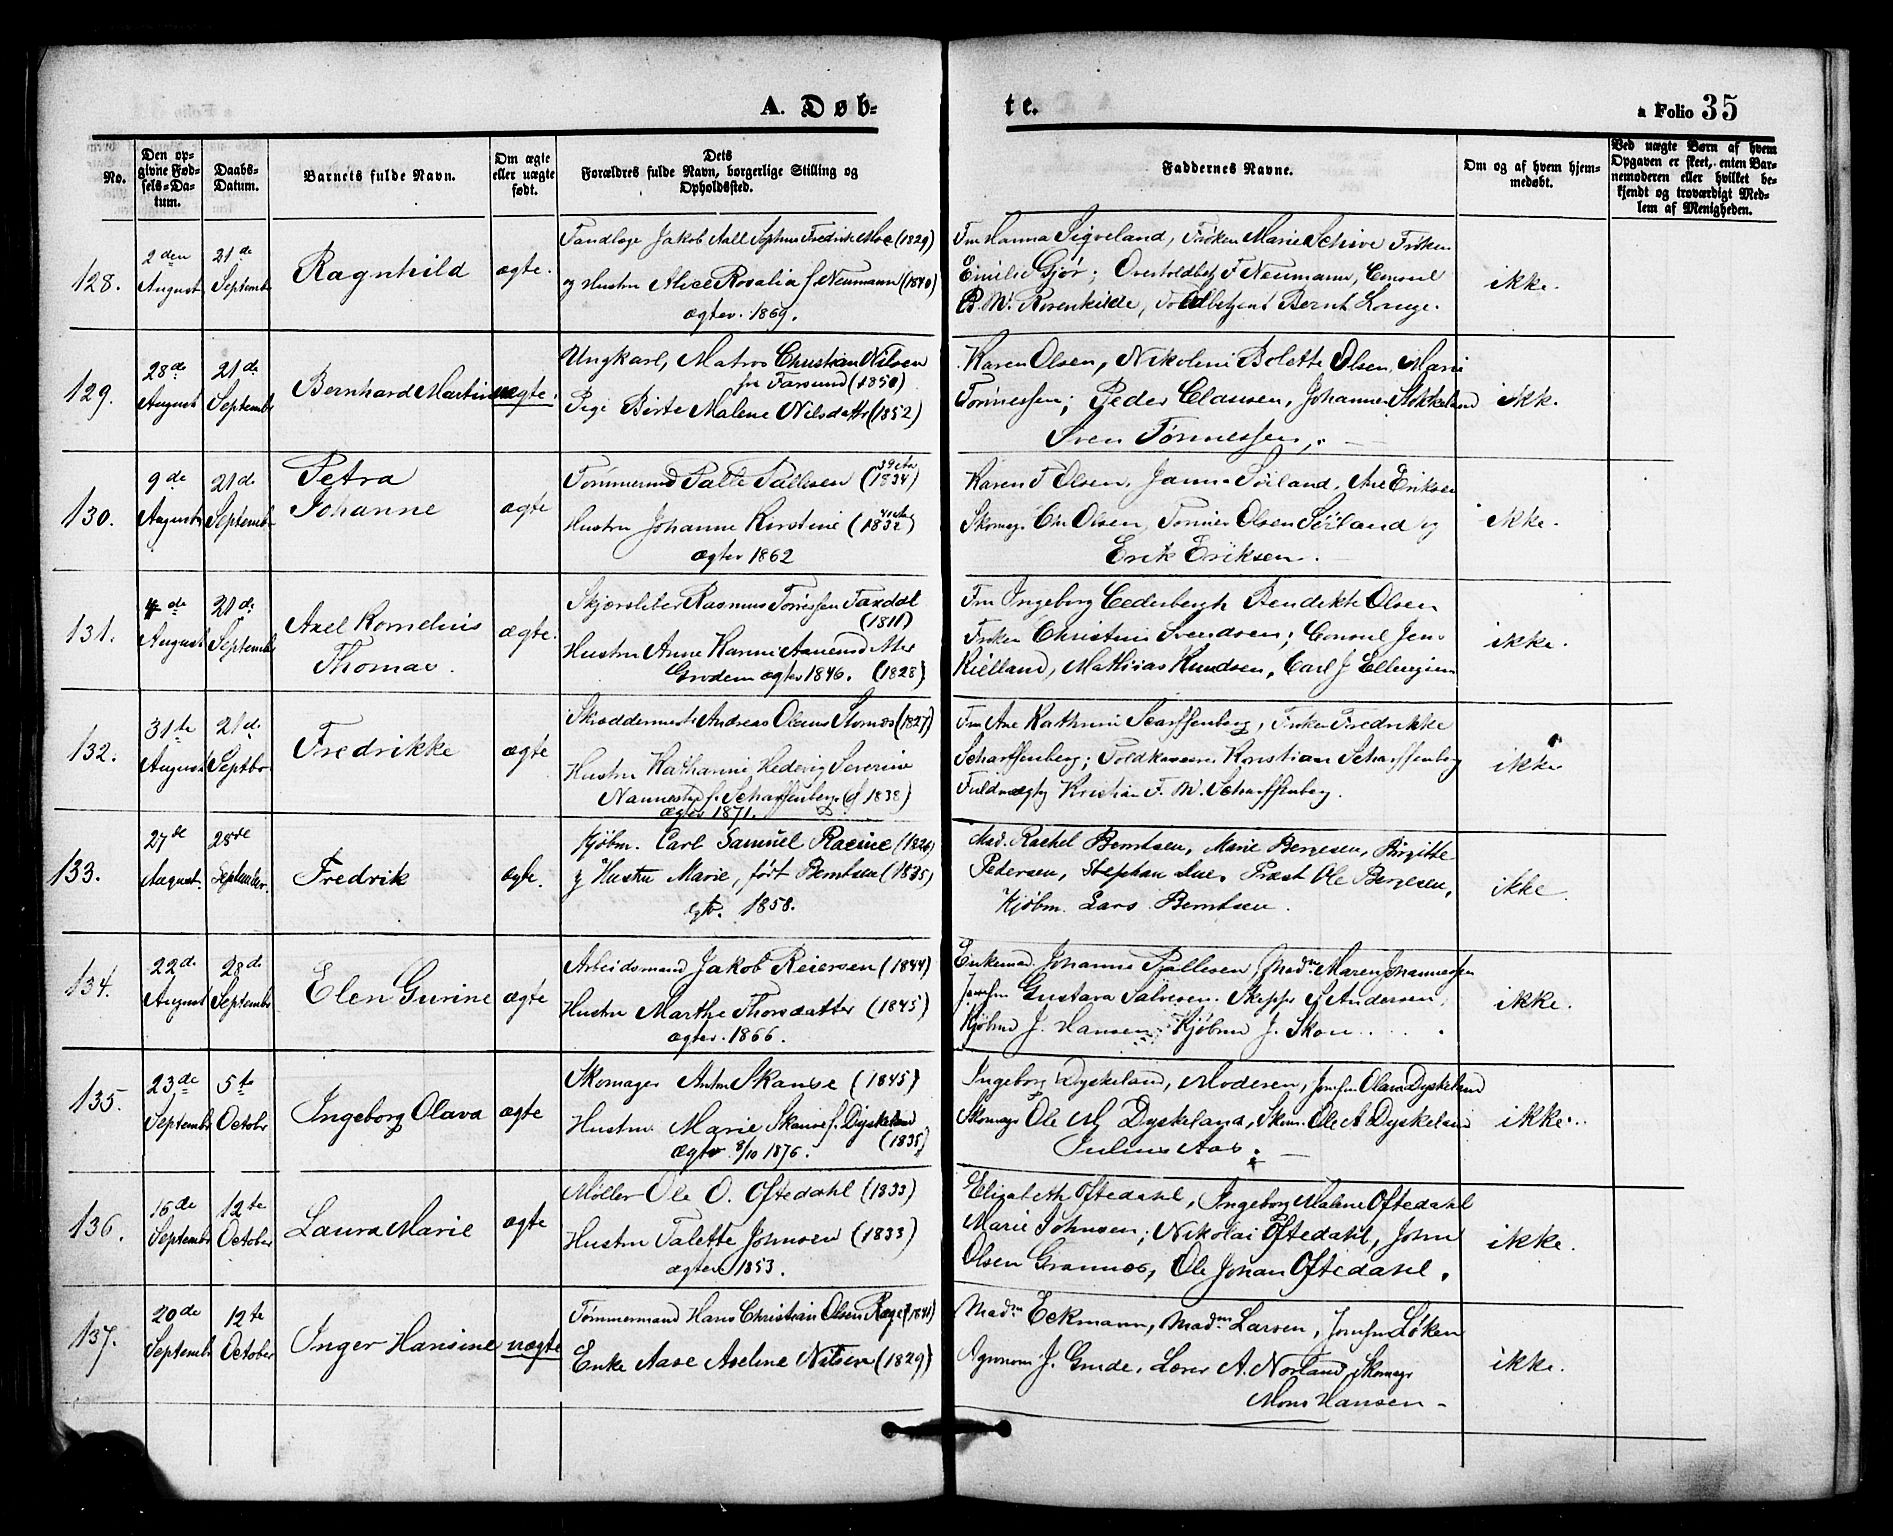 A. Døb-
te.
a Folio 35
No.
Den op-
givne Fød-
sels-Da-
tum.
Daabs-
Datum.
Barnets fulde Navn.
Om ægte
eller uægte
født.
Dets
Forældres fulde Navn, borgerlige Stilling og
Opholdssted.
Faddernes Navne.
Om og af hvem hjem-
medøbt.
Ved uægte Børn af hvem
Opgaven er skeet, enten Bar-
nemoderen eller hvilket be-
kjendt og troværdigt Med-
lem af Menigheden.
128.
2den
August
21de
Septemb
Ragnhild
ægte.
Tandlæge Jakob Aall Sophus Fredrik Moe (1829)
og Hustru Alice Rosalia f. Neumann (1840)
ægtev. 1869.
Fru Hanna Sigveland, Frøken Marie Schive Frøken
Emilie Gjør; Overtoldbetj F Neumann, Consul
P. M. Rosenkilde, Toldbetjent Bernt Lange.
ikke.
129.
28de
August
21de
Septembr
Bernhard Martin
uægte.
Ungkarl, Matros Christian Nilsen
fra Farsund (1850)
Pige Birte Malene Nilsdattr (1852)
Karen Olsen, Nikolini Bolette Olsen, Marie
Tønnessen; Peder Clausen, Johannes Stokkeland
Sven Tønnessen.
ikk.
130.
9de
August
21de
Septembr
Petra
Johanne
ægte
Tømmermd Palle Pallesen (1834)
Hustru Johanne Kirstine (1832)
ægtev 1862
Karen T Olsen, Janna Sørland, Ane Eriksen
Skomagr Chr Olsen, Tønnes Olsen Sørland og
Erik Eriksen.
ikke.
131.
4de
August
21de
Septembr
Axel Kornelius
Thomas.
ægte.
Rasmus Torresen Taxdal
(1811)
Hustru Anne Karine Aanensd Atter
Grodem ægtev 1846. (1828)
Fru Ingeborg Cederbergh Bendikte Olsen
Frøken Christine Svendsen; Consul Jens
Kielland, Mathias Knudsen, Carl J Ellingsen
ikke.
132.
31te
August
21de
Septbr
Fredrikke
ægte
Skræddermestr Andreas Olaus (1827)
Hustru Katharine Hedevig Severine
Nannestad f. Scharffenberg (f 1838)
ægtev 1871.
Fru Ane Kathrine Scarffenberg, Frøken Fredrikke
Scharffenberg; Toldkasserer Kristian Scharffenberg
Fuldmægtig Kristian F. W. Scharffenberg.
ikke
133.
27de
August.
28de
September.
Fredrik
ægte.
Kjøbm. Carl Samuel Racine (1826)
og Hustru Marie, født Berntsen (1835)
egtv. 1858.
Mad. Rachel Berntsen, Marie Bergesen, Birgitte
Pedersen, Stephan Lue, Præst Ole Bergesen,
Kjøbm. Lars Berntsen.
ikke.
134.
22de
August
28de
Septembr
Elen Gurine
ægte
Arbeidsmand Jakob Reiersen (1844)
Hustru Marthe Thorsdatter (1845)
ægtev. 1866.
Enkemad. Johanne Pallesen, Madm Maren Johannessen
Jomfru Gustava Salvesen. Skippr Andersen,
Kjøbmd J. Hansen Kjøbmd J. Skou
ikke.
135.
23de
Septembr
5te
Octobr
Ingeborg Olava
ægte
Skomager Anton Skanse (1845)
Hustru Marie Skanse f. Dyskeland
(1835)
ægtev. 8/10 1876.
Ingeborg Dyskeland, Moderen, Jomfru Olava Dyskeland
Skomagr Ole M Dyskeland, Skom. Ole A Dyskeland
Julius Aas.
ikke.
136.
16de
Septembr
12te
October
Laura Marie
ægte
Møller Ole O. Oftedahl (1833)
Hustru Talette Johnsen (1833)
ægtev 1853.
Elizabeth Oftedahl, Ingeborg Malene Oftedahl
Marie Johnsen; Nikolai Oftedahl, John
Olsen Grannæs, Ole Johan Oftedahl.
ikke.
137.
20de
Septembr
12te
October
Inger Hansine
uægte
Tømmermand Hans Christian Olsen Rage (1841)
Enke Aase Axeline Nilsen (1829)
Madm Eckmann, Madm Larsen, Jomfru Løken
Agronom J. Gude, Lærer A. Norland, Skomagr
Mons Hansen
ikke.